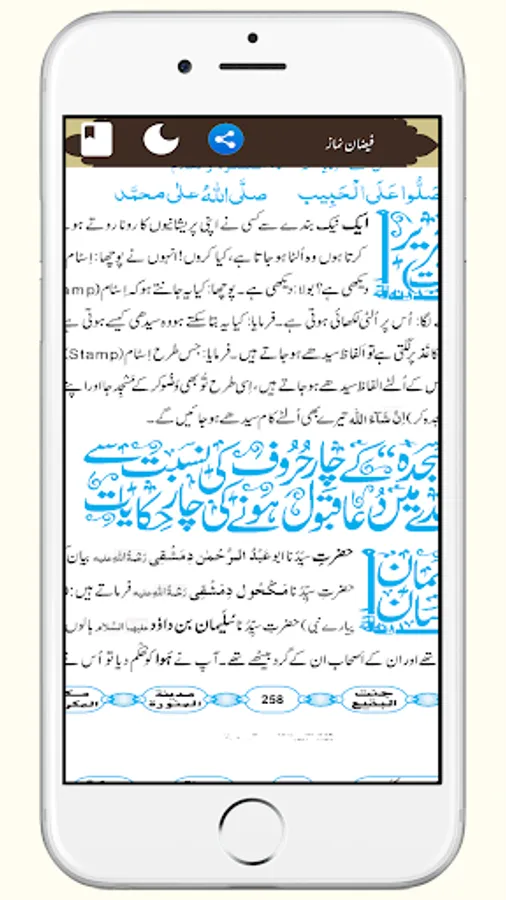 فیضان نماز
صَلُّوا عَلَی الْحَبِیب صلَّی اللہُ علٰی محمَّد
ایک نیک بندے سے کسی نے اپنی پریشانیوں کا رونا روتے ہو
کرتا ہوں وہ اُلٹا ہو جاتا ہے، کیا کروں! انہوں نے پوچھا: اِسٹام
دیکھی ہے؟ بولا: دیکھی ہے۔ پوچھا: کیا یہ جانتے ہو کہ اِسٹام (amp
لگا: اُس پر اُلٹی لکھائی ہوتی ہے۔ فرمایا: کیا یہ بتا سکتے ہو وہ سیدھی کیسے ہوتی ہے
کاغذ پر لگتی ہے تو الفاظ سیدھے ہو جاتے ہیں۔ فرمایا: جس طرح اِسٹام (Stamp)
س کے اُلٹے الفاظ سیدھے ہو جاتے ہیں، اِسی طرح تُو بھی وُضو کر کے مَسْجِد جا اور اپنے
جدہ کر) اِنْ شَآءَ اللہ تیرے بھی اُلٹے کام سیدھے ہو جائیں گے۔
جدہ“ کے چار حُرُوف کی نسبت سے
دے میں دُعا قبول ہونے کی چار حِکایات
حضرتِ سیِّدُنا ابو عَبْدُ الرَّحْمٰن دِمَشْقی رَحْمَۃُ اللہِ علیہ بیان ک
حضرتِ سیِّدُنا مَکْحُول دِمَشْقی رَحْمَۃُ اللہِ علیہ فرماتے ہیں:
پیارے نبی) حضرتِ سیِّدُنا سُلَیمان بن داوٗد علیہما السَّلام بالوں
تھے اور ان کے اَصحاب ان کے گرد بیٹھے تھے۔ آپ نے ہوا کو حُکْم دیا تو اُس نے
جنّت البقیع 258 مدینۃ المنورۃ